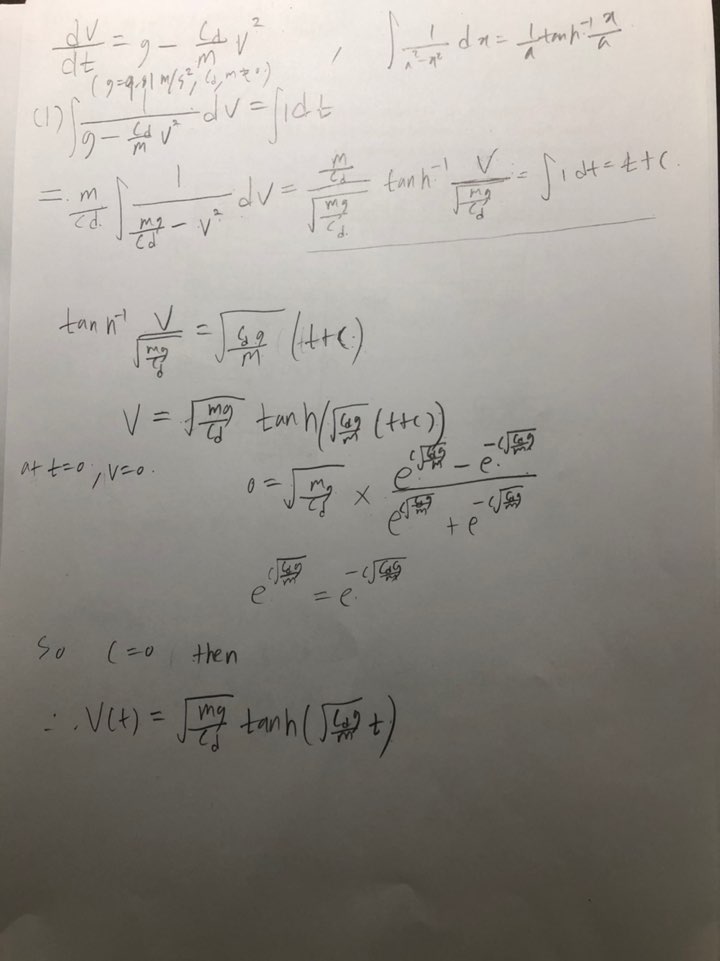 dV/dt = g - Cd/m V² , ∫ 1/(a²-x²) dx = 1/a tanh⁻¹ x/a
(g=9.81 m/s², Cd, m≠0)
(1) ∫ 1/(g - Cd/m V²) dV = ∫ 1 dt
= m/Cd ∫ 1/(mg/Cd - V²) dV = (m/Cd)/√(mg/Cd) tanh⁻¹ V/√(mg/Cd) = ∫ 1 dt = t + C.
tanh⁻¹ V/√(mg/Cd) = √(Cd g/m) (t+C)
V = √(mg/Cd) tanh(√(Cd g/m) (t+C))
at t=0, V=0. 0 = √(mg/Cd) × (e^(C√(Cd g/m)) - e^(-C√(Cd g/m)))/(e^(C√(Cd g/m)) + e^(-C√(Cd g/m)))
e^(C√(Cd g/m)) = e^(-C√(Cd g/m))
So C=0 then
∴ V(t) = √(mg/Cd) tanh(√(Cd g/m) t)